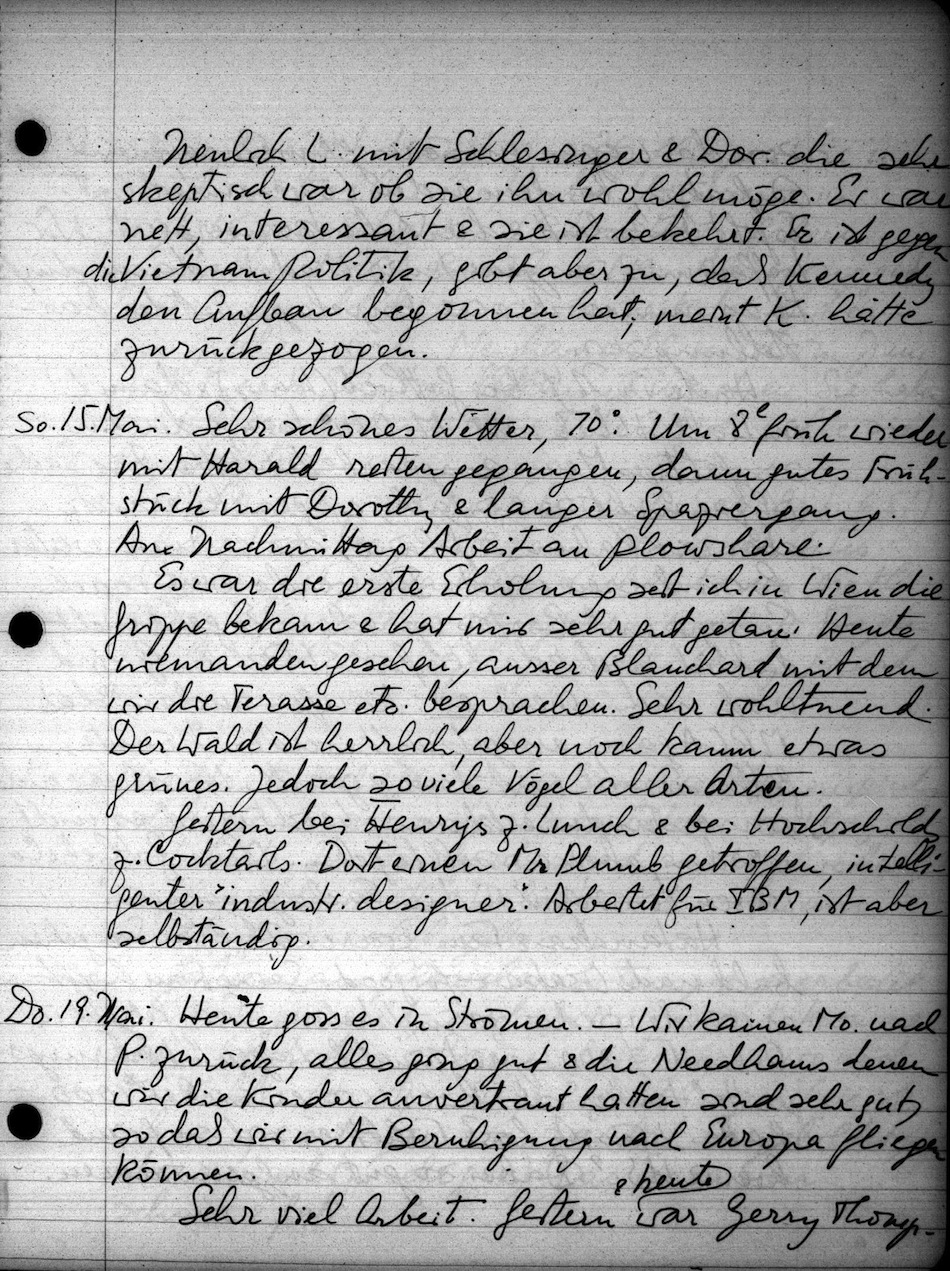 Neulich L. mit Schlesinger & Dor. die sehr
skeptisch war ob sie ihn wohl möge. Er war
nett, interessant & sie ist bekehrt. Er ist gegen
die Vietnam Politik, gibt aber zu, daß Kennedy
den Aufbau begonnen hat; meint K. hätte
zurückgezogen.
So. 15. Mai. Sehr schönes Wetter, 70°. Um 8e früh wieder
mit Harald reiten gegangen, dann gutes Früh-
stück mit Dorothy & langer Spaziergang.
Am Nachmittag Arbeit an Plowshare.
Es war die erste Erholung seit ich in Wien die
Grippe bekam & hat mir sehr gut getan. Heute
niemanden gesehen, ausser Blanchard mit dem
wir die Terasse etc. besprachen. Sehr wohltuend.
Der Wald ist herrlich, aber noch kaum etwas
grünes. Jedoch so viele Vögel aller Arten.
Gestern bei Henrys z. Lunch & bei Hochschilds
z. Cocktails. Dort einen Mr Plumb getroffen, intelli-
genter "industr. designer". Arbeitet für IBM, ist aber
selbständig.
Do. 19. Mai. Heute goss es in Strömen. — Wir kamen Mo. nach
P. zurück, alles ging gut & die Needhams denen
wir die Kinder anvertraut hatten sind sehr gut,
so daß wir mit Beruhigung nach Europa fliegen
können.
& heute
Sehr viel Arbeit. Gestern war Gerry Thomp-